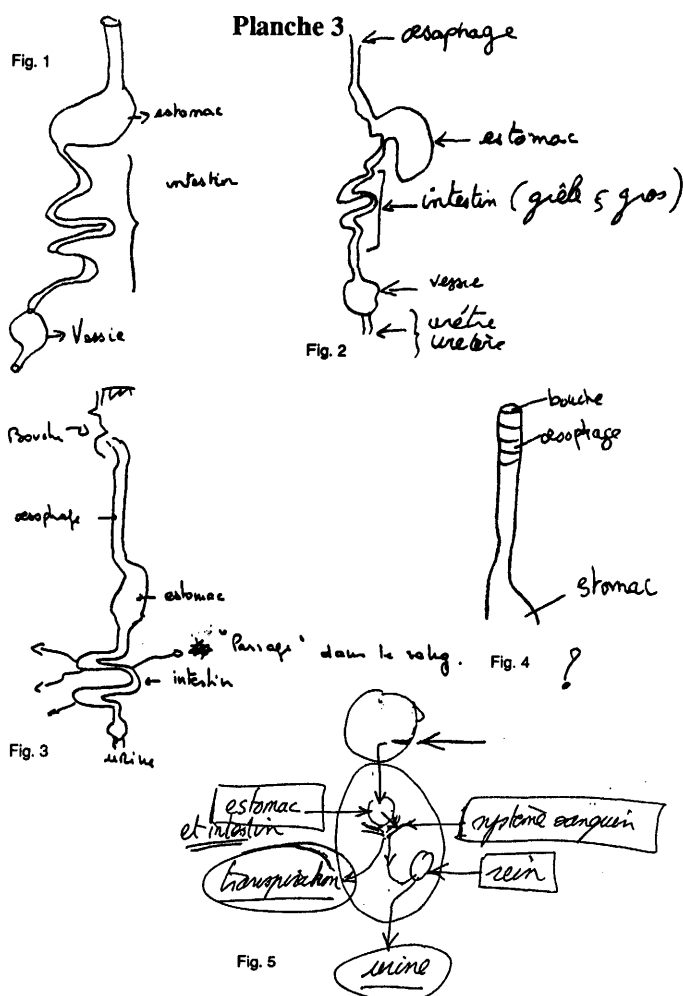 Planche 3
Fig. 1
estomac
intestin
Vessie
œsaphage
estomac
intestin (grêle & gros)
vessie
urétre
uretère
Fig. 2
Bouche
œsophage
estomac
"Passage" dans le sang.
intestin
urine
Fig. 3
bouche
œsophage
estomac
Fig. 4
?
estomac
et intestin
système sanguin
transpiration
rein
urine
Fig. 5